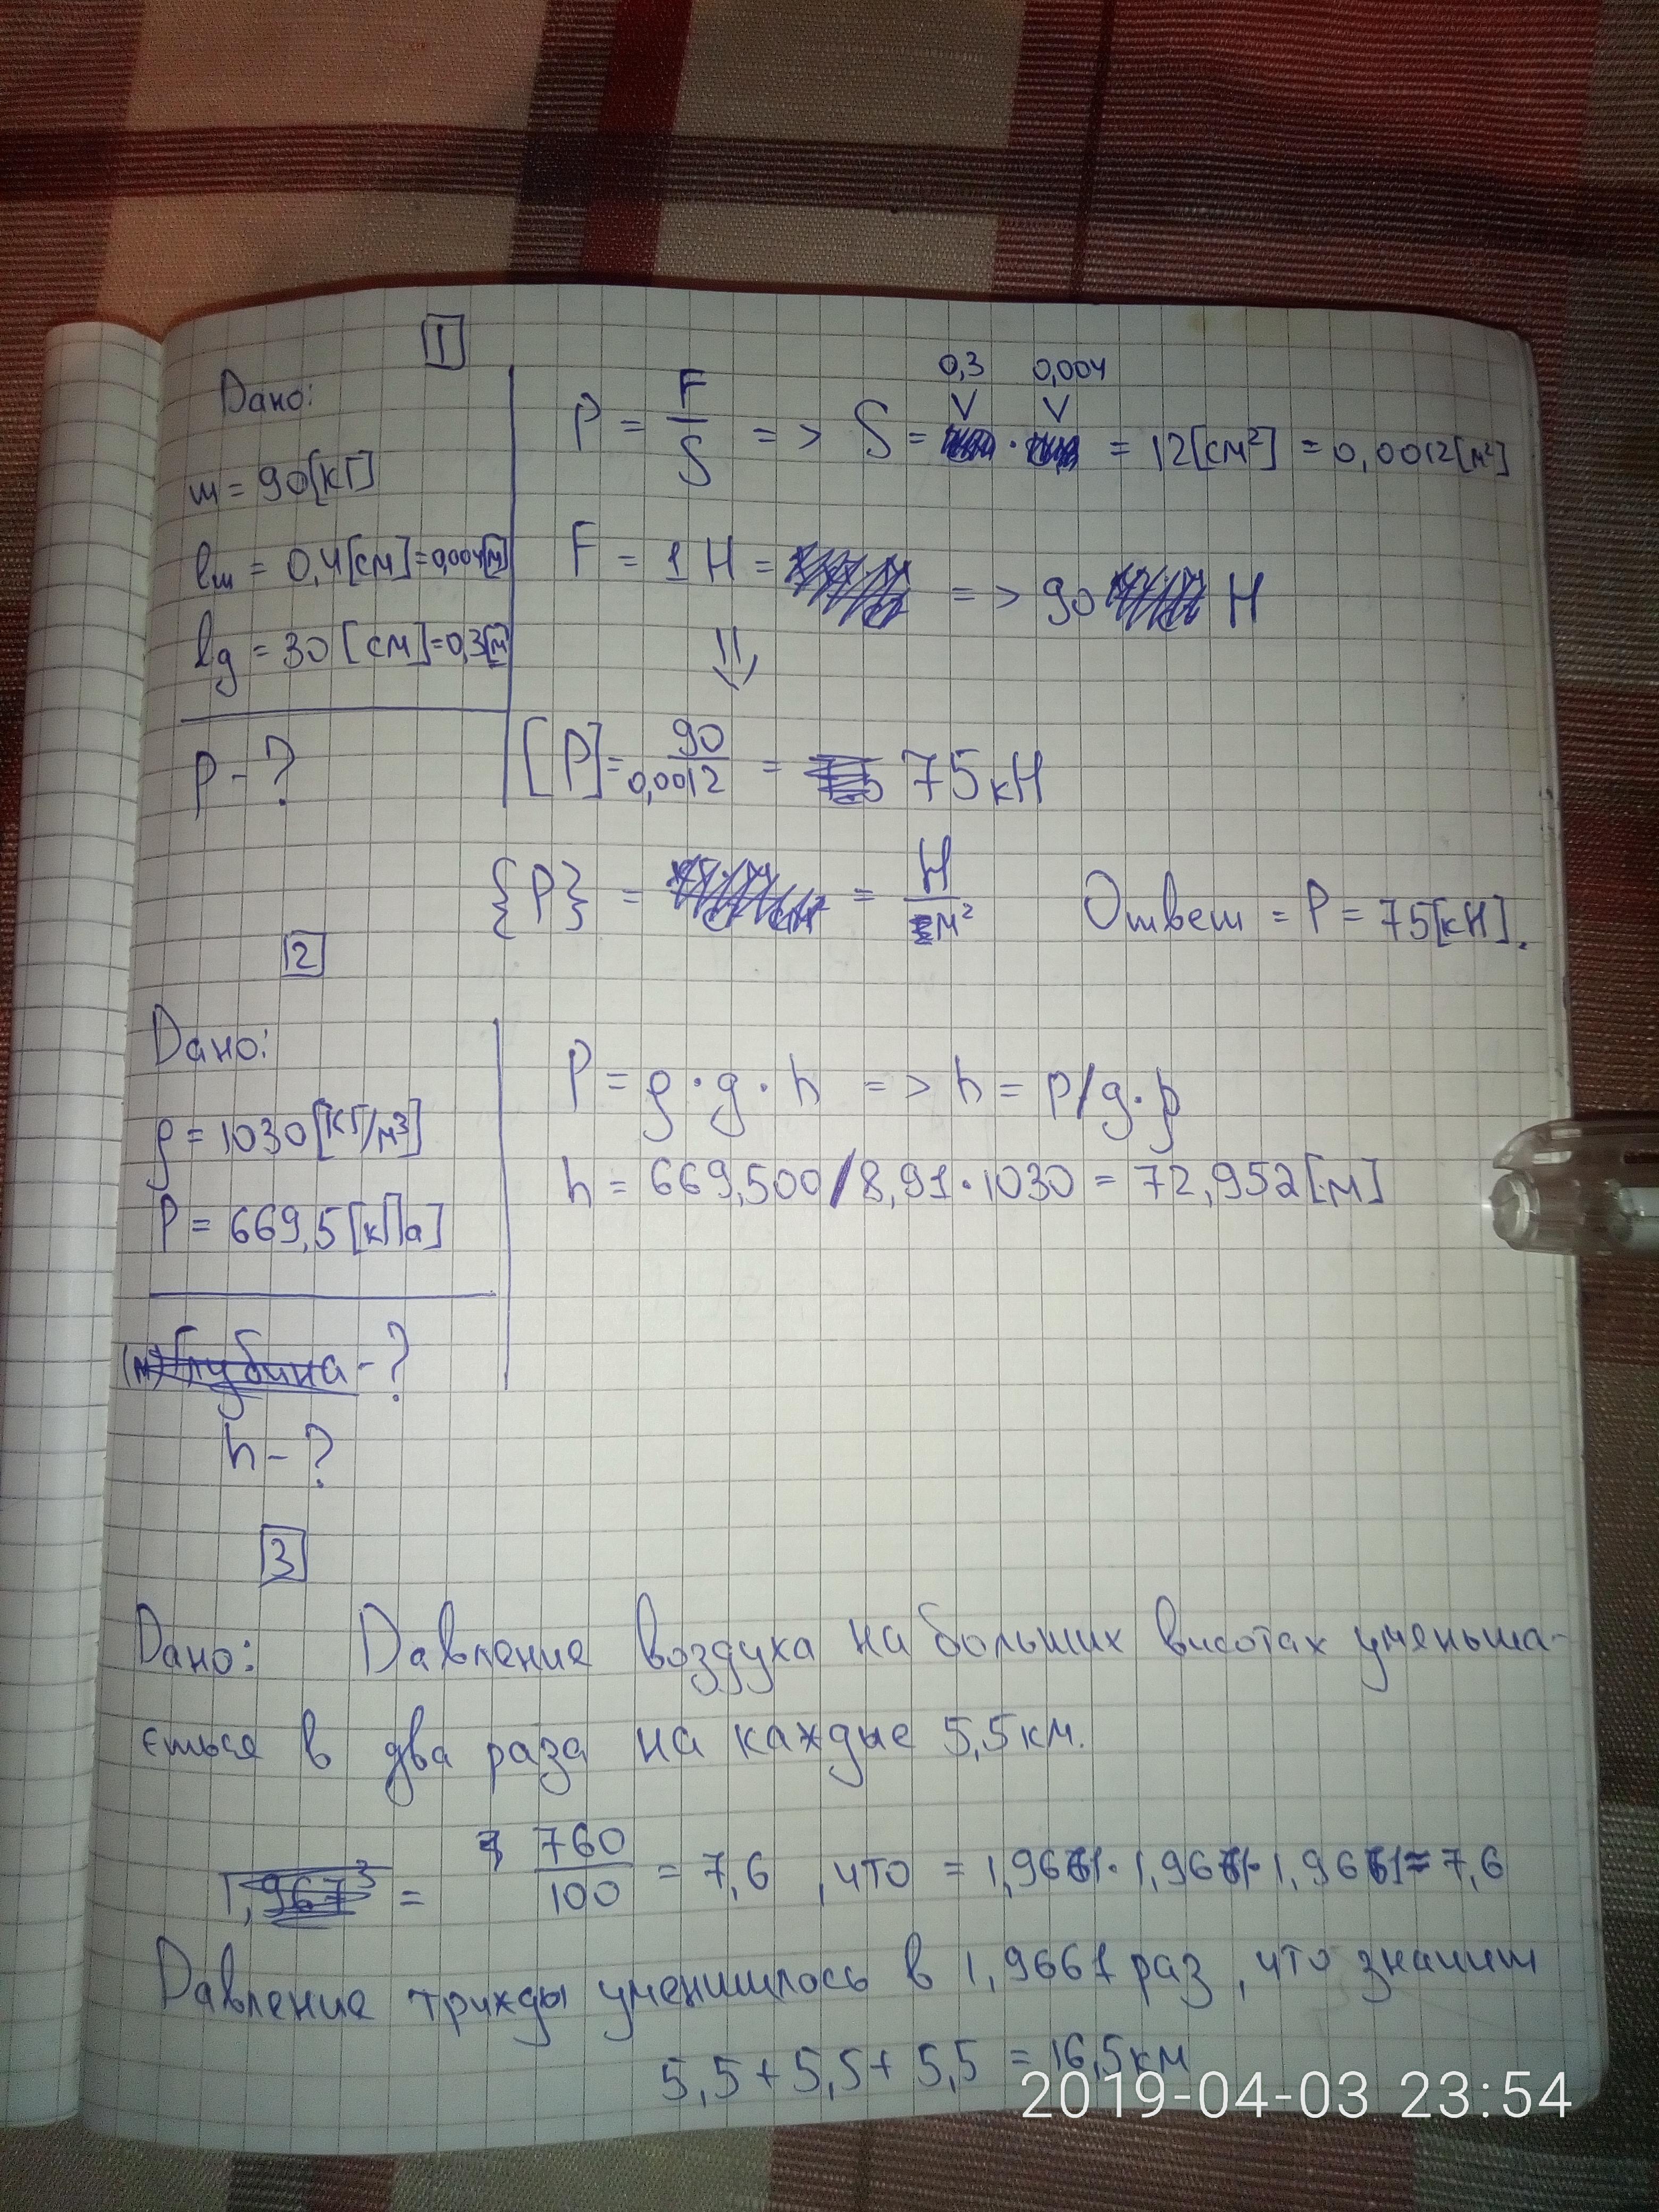 1
Дано:
m = 90[кГ]
lш = 0,4[см]=0,004[м]
lg = 30 [см]=0,3[м]
p - ?
0,3 0,004
V V
P = F/S => S = · = 12[см²] = 0,0012[м²]
F = 1 Н = => 90 Н
⇓
[P] = 90/0,0012 = 75кН
{P} = = Н/м²
Ответ = P = 75[кН].
2
Дано:
ρ = 1030[кГ/м³]
P = 669,5[кПа]
глубина - ?
h - ?
P = ρ·g·h => h = p/g·ρ
h = 669,500/8,91·1030 = 72,952[м]
3
Дано: Давление воздуха на больших висотах уменьша-
ється в два раза на каждые 5,5км.
1,967³ = 760/100 = 7,6 , что = 1,9661·1,9661·1,9661=7,6
Давление трижды уменшилось в 1,9661 раз, что значит
5,5+5,5+5,5 = 16,5км
2019-04-03 23:54